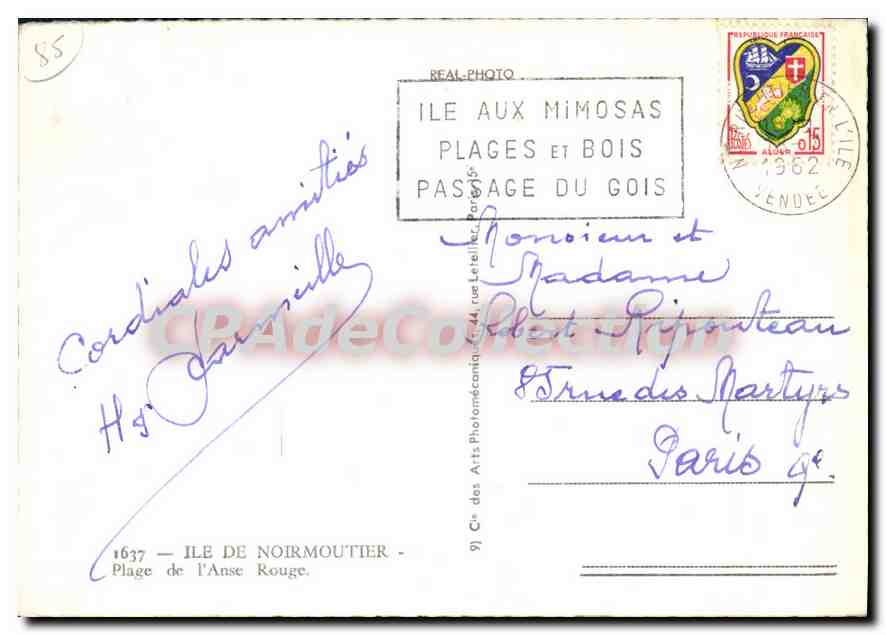 85
REAL-PHOTO
ILE AUX MiMOSAS
PLAGES ET BOIS
PASSAGE DU GOIS
REPUBLIQUE FRANÇAISE
POSTES
ALGER
0,15
L'ILE
1962
VENDEE
Cordiales amitiés
Monsieur et
Madame
Robert Ripouteau
85 rue des Martyrs
Paris 9e.
CPAdeCollection
9) Cie des Arts Photomécaniques, 44, rue Letellier, Paris-15e
1637 — ILE DE NOIRMOUTIER -
Plage de l'Anse Rouge.